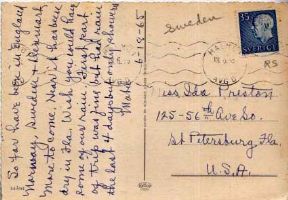 Sweden
6-18-65
So far have been in England
Norway Sweden & Denmark
More to come. Hear it has been
dry in Fla. Wish you could have
some of our rain. First part
of trip was fine but had rain
the last 4 days but only showers
Mabel
35
SVERIGE
RS
Miss Ida Preston
125-56th Ave So.
St Petersburg Fla.
U.S.A.